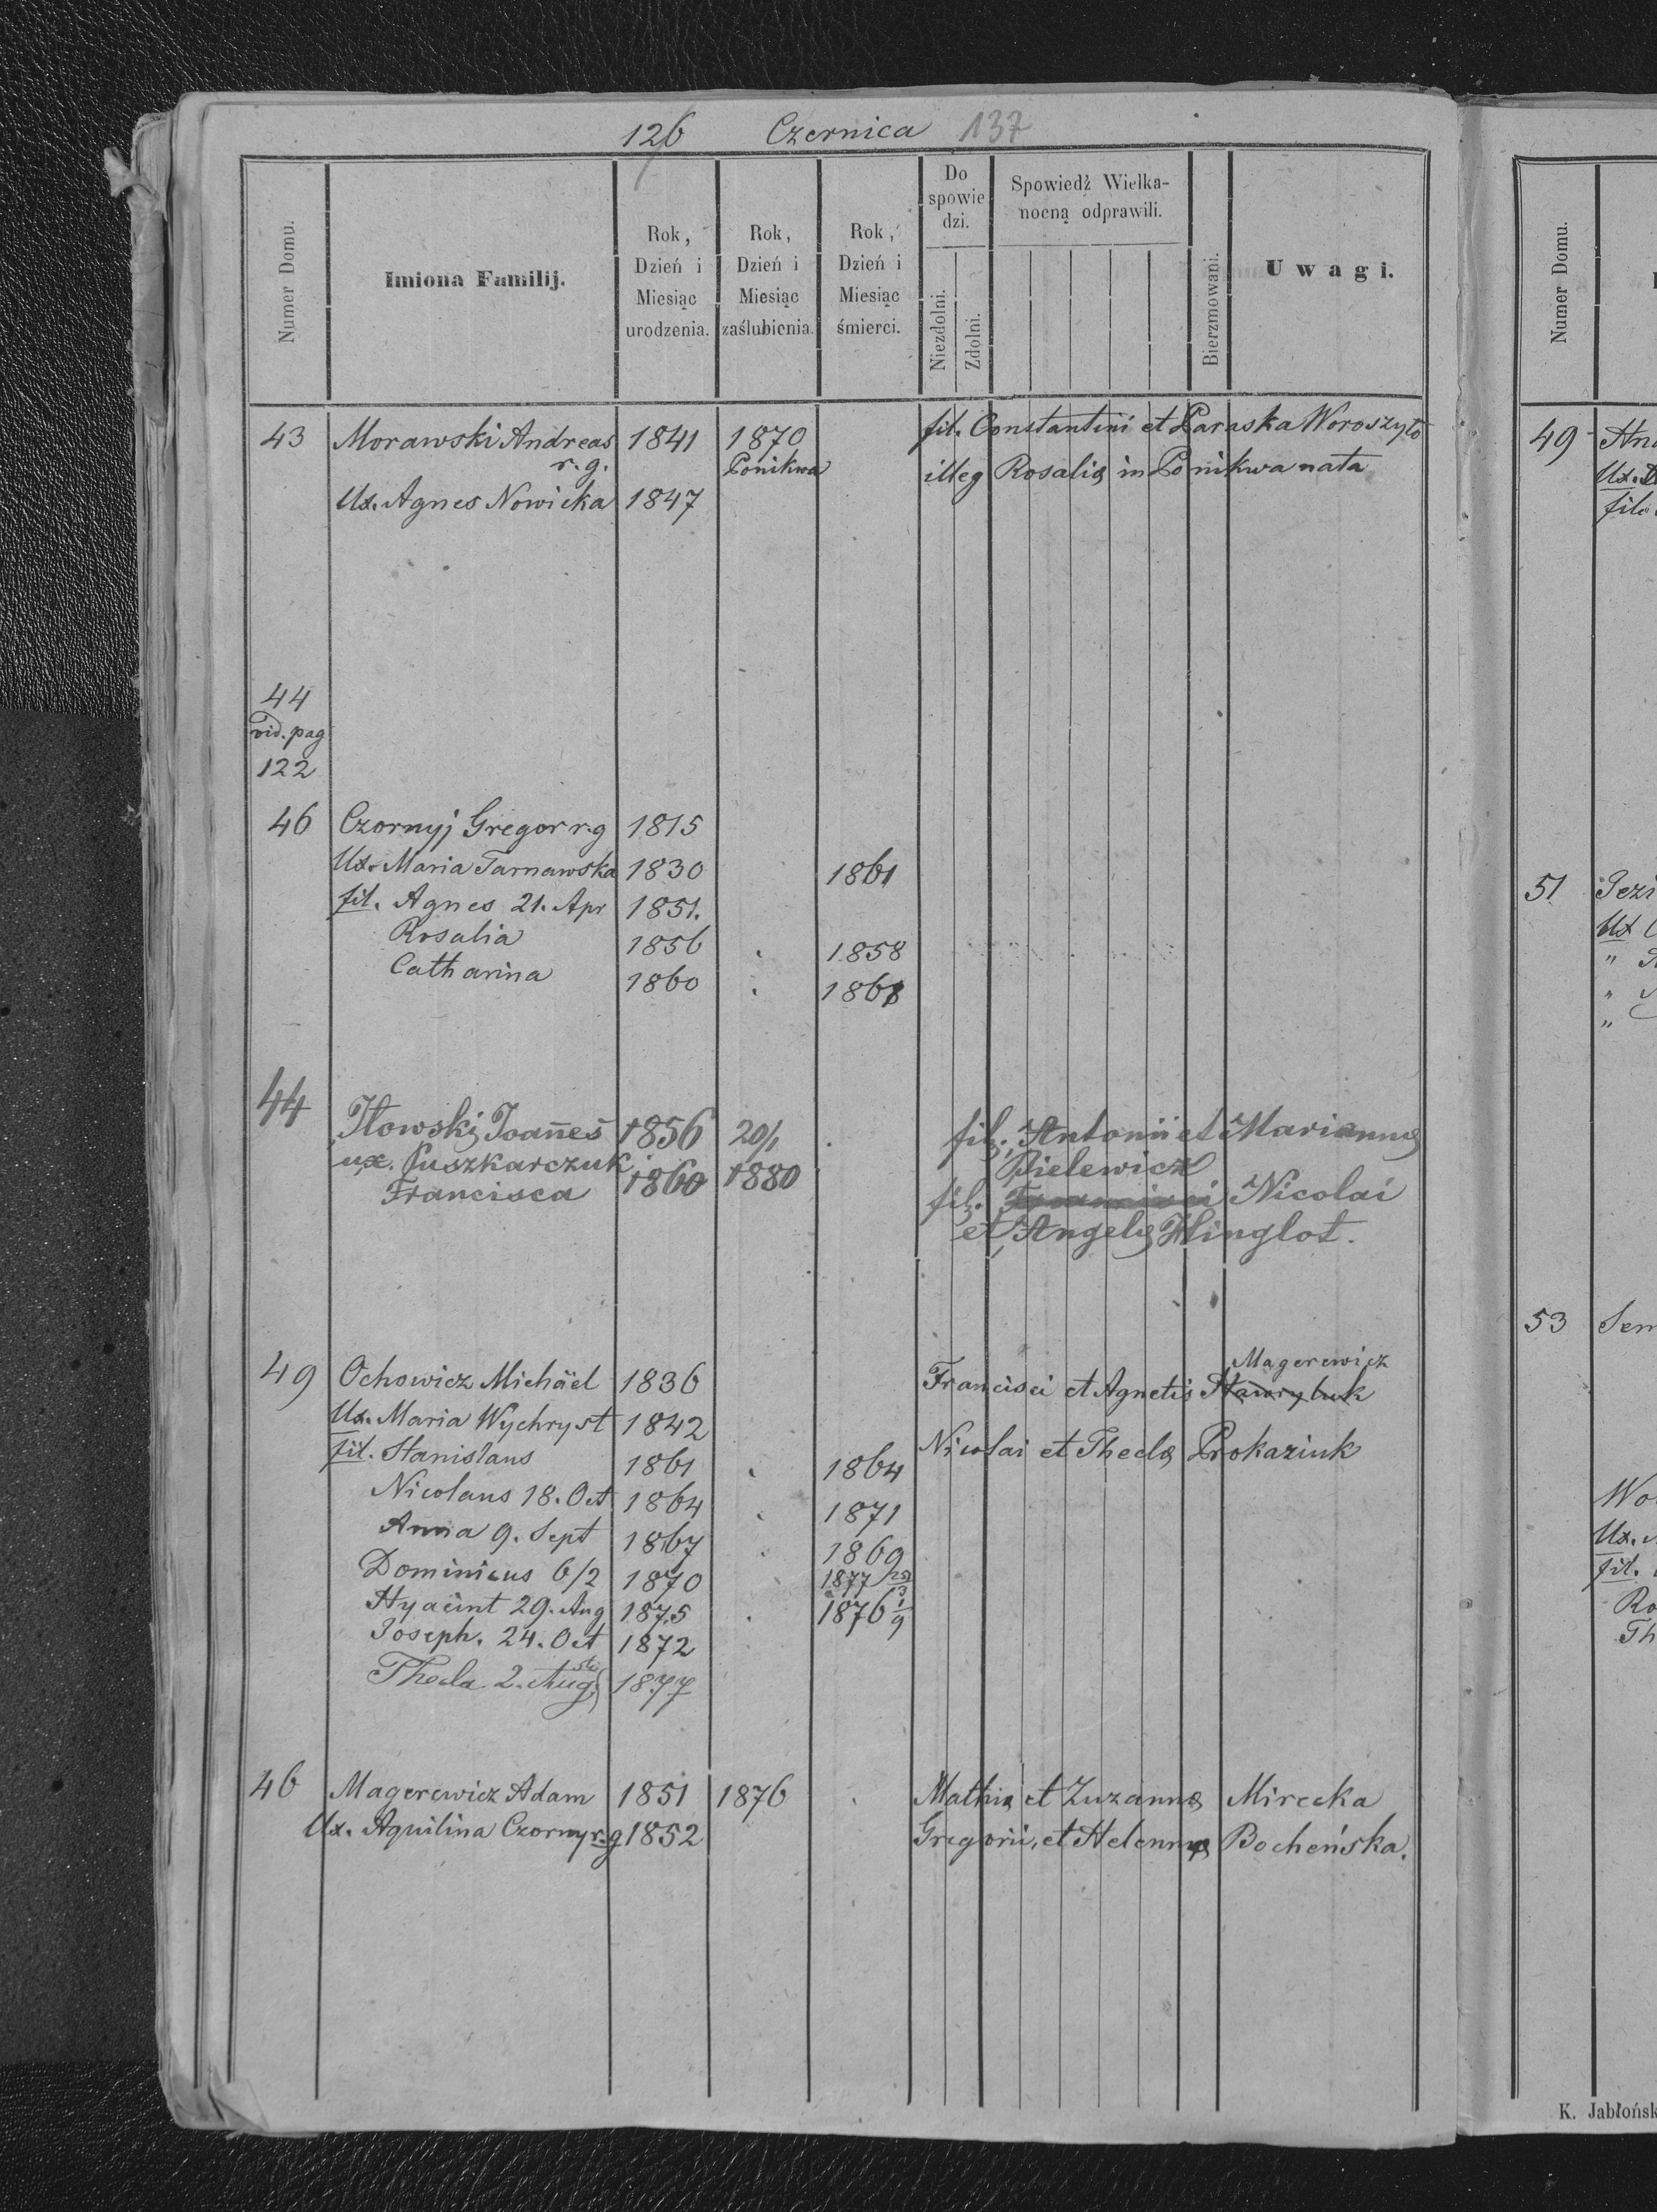 126 Czernica 137
Numer Domu.
Imiona Familij.
Rok, Dzień i Miesiąc urodzenia.
Rok, Dzień i Miesiąc zaślubienia.
Rok, Dzień i Miesiąc śmierci.
Do spowiedzi.
Niezdolni.
Zdolni.
Spowiedź Wielka-
nocną odprawili.
Bierzmowani.
Uwagi.
43 Morawski Andreas 1841 1870 fil. Constantini et Paraska Woroszyło
r.g. Ponikwa illeg Rosaliæ in Ponikwa nata
Ux. Agnes Nowicka 1847
44
vid. pag
122
46 Czornyj Gregor r.g 1815
Ux. Maria Tarnawska 1830 1861
fil. Agnes 21. Apr 1851.
Rosalia 1856 1858
Catharina 1860 1868
44 Iłowski Joañes 1856 20/1 fil. Antonii et Mariannæ
ux. Puszkarczuk Pielewicz
Francisca 1860 1880 fil. Francisci Nicolai
et Angelæ Hinglot.
49 Ochowicz Michäel 1836 Francisci et Agnetis Hawryluk Magerewicz
Ux. Maria Wychryst 1842 Nicolai et Theclæ Prokaziuk
fil. Stanislaus 1861 1864
Nicolaus 18. Oct 1864 1871
Anna 9. Sept 1867 1869
Dominicus 6/2 1870 1877 22/3
Hyacint 29. Aug 1875 1876 1/9
Joseph. 24. Oct 1872
Thecla 2. Augsti 1877
46 Magerewicz Adam 1851 1876 Mathiæ et Zuzannæ Mirecka
Ux. Aquilina Czorny r.g 1852 Gregorii, et Helennæ Bocheńska.
Numer Domu.
49
Ux.
fil.
51
Ux
"
"
"
53
Ux.
fil.
Ro
Th
K. Jabłońsk